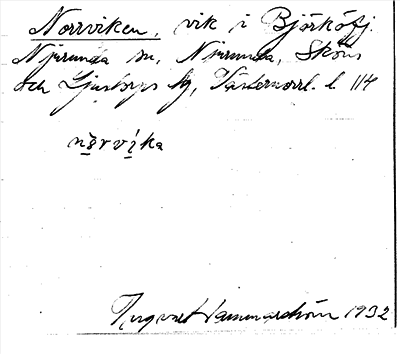 Norrviken, vik i Björköfj.
Njurunda sn, Njurunda, Sköns
och Ljustorps tg, Västernorrl. l. 114
nårvika
Ingvar Hammarström 1932